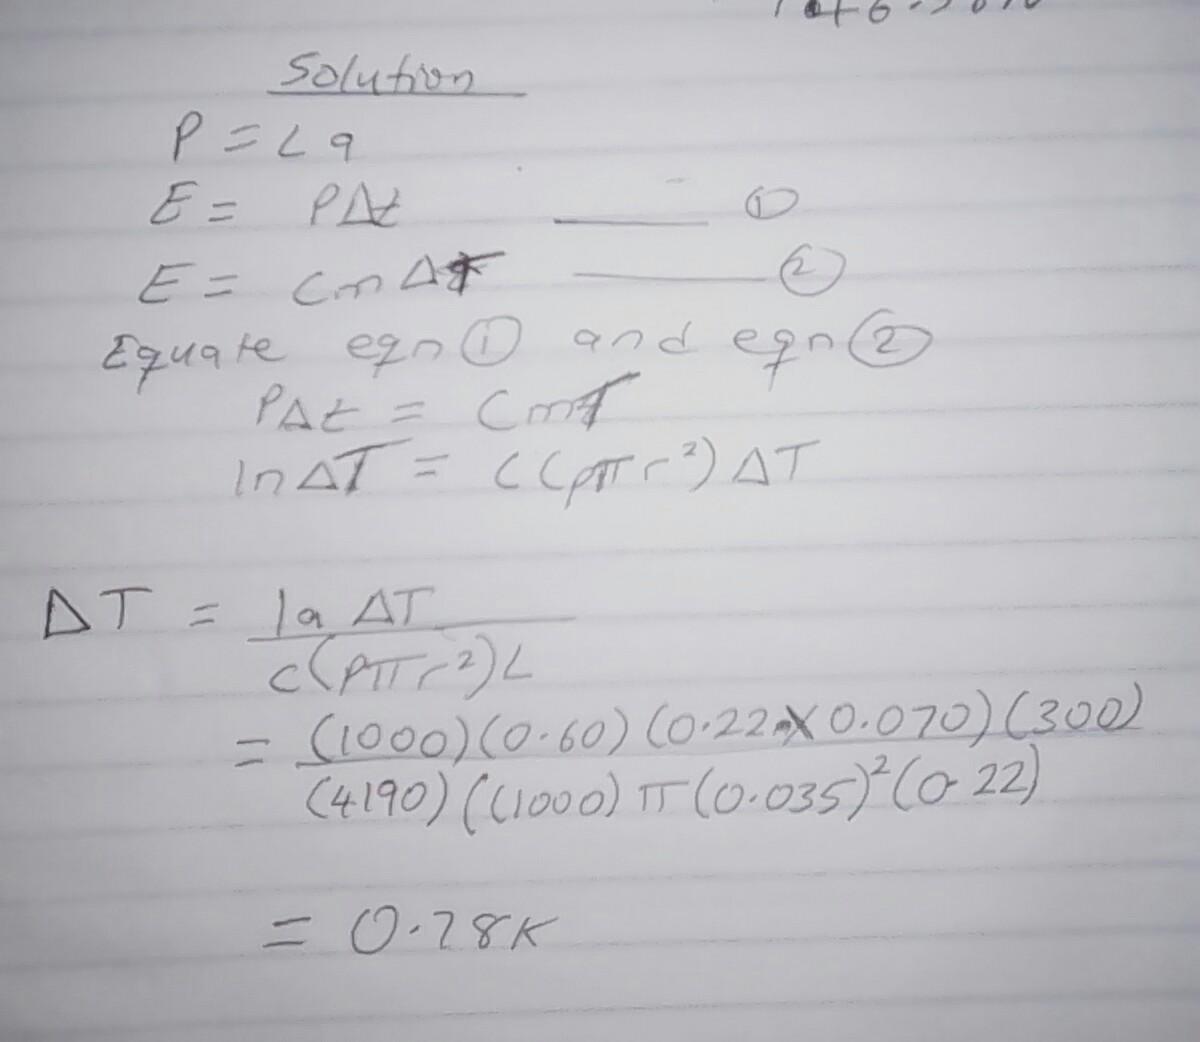 Solution
P = La
E = PΔt ——— ①
E = CmΔT ——— ②
Equate eqn ① and eqn ②
PΔt = CmT
InΔT = C(ρπr²)ΔT
ΔT = Ia ΔT
c(ρπr²)L
= (1000)(0.60)(0.22 X 0.070)(300)
(4190)((1000)π(0.035)²(0.22)
= 0.78K